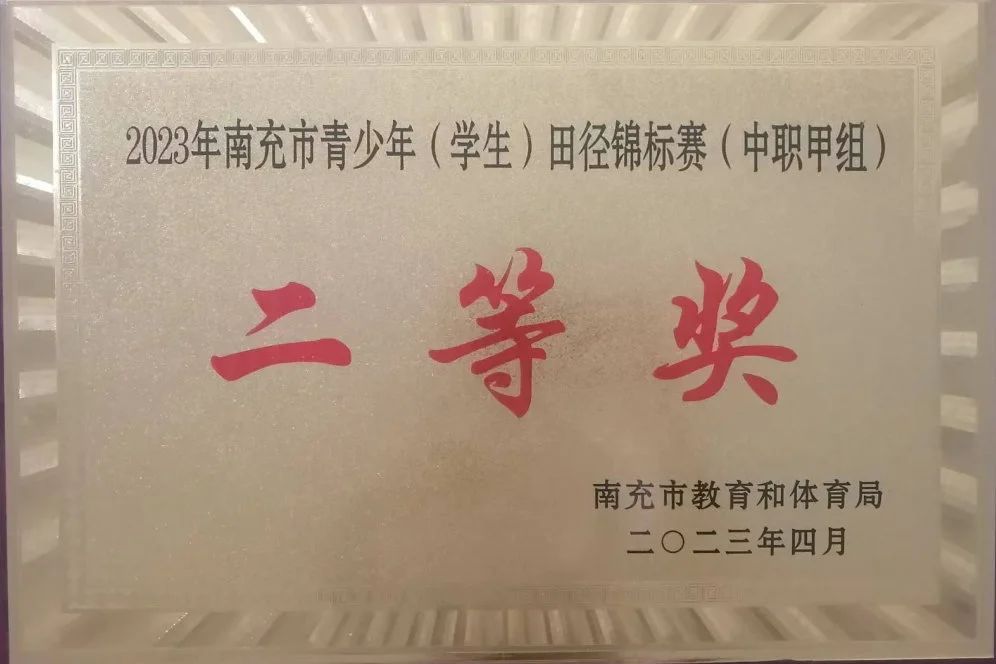 2023年南充市青少年（学生）田径锦标赛（中职甲组）
二等奖
南充市教育和体育局
二〇二三年四月